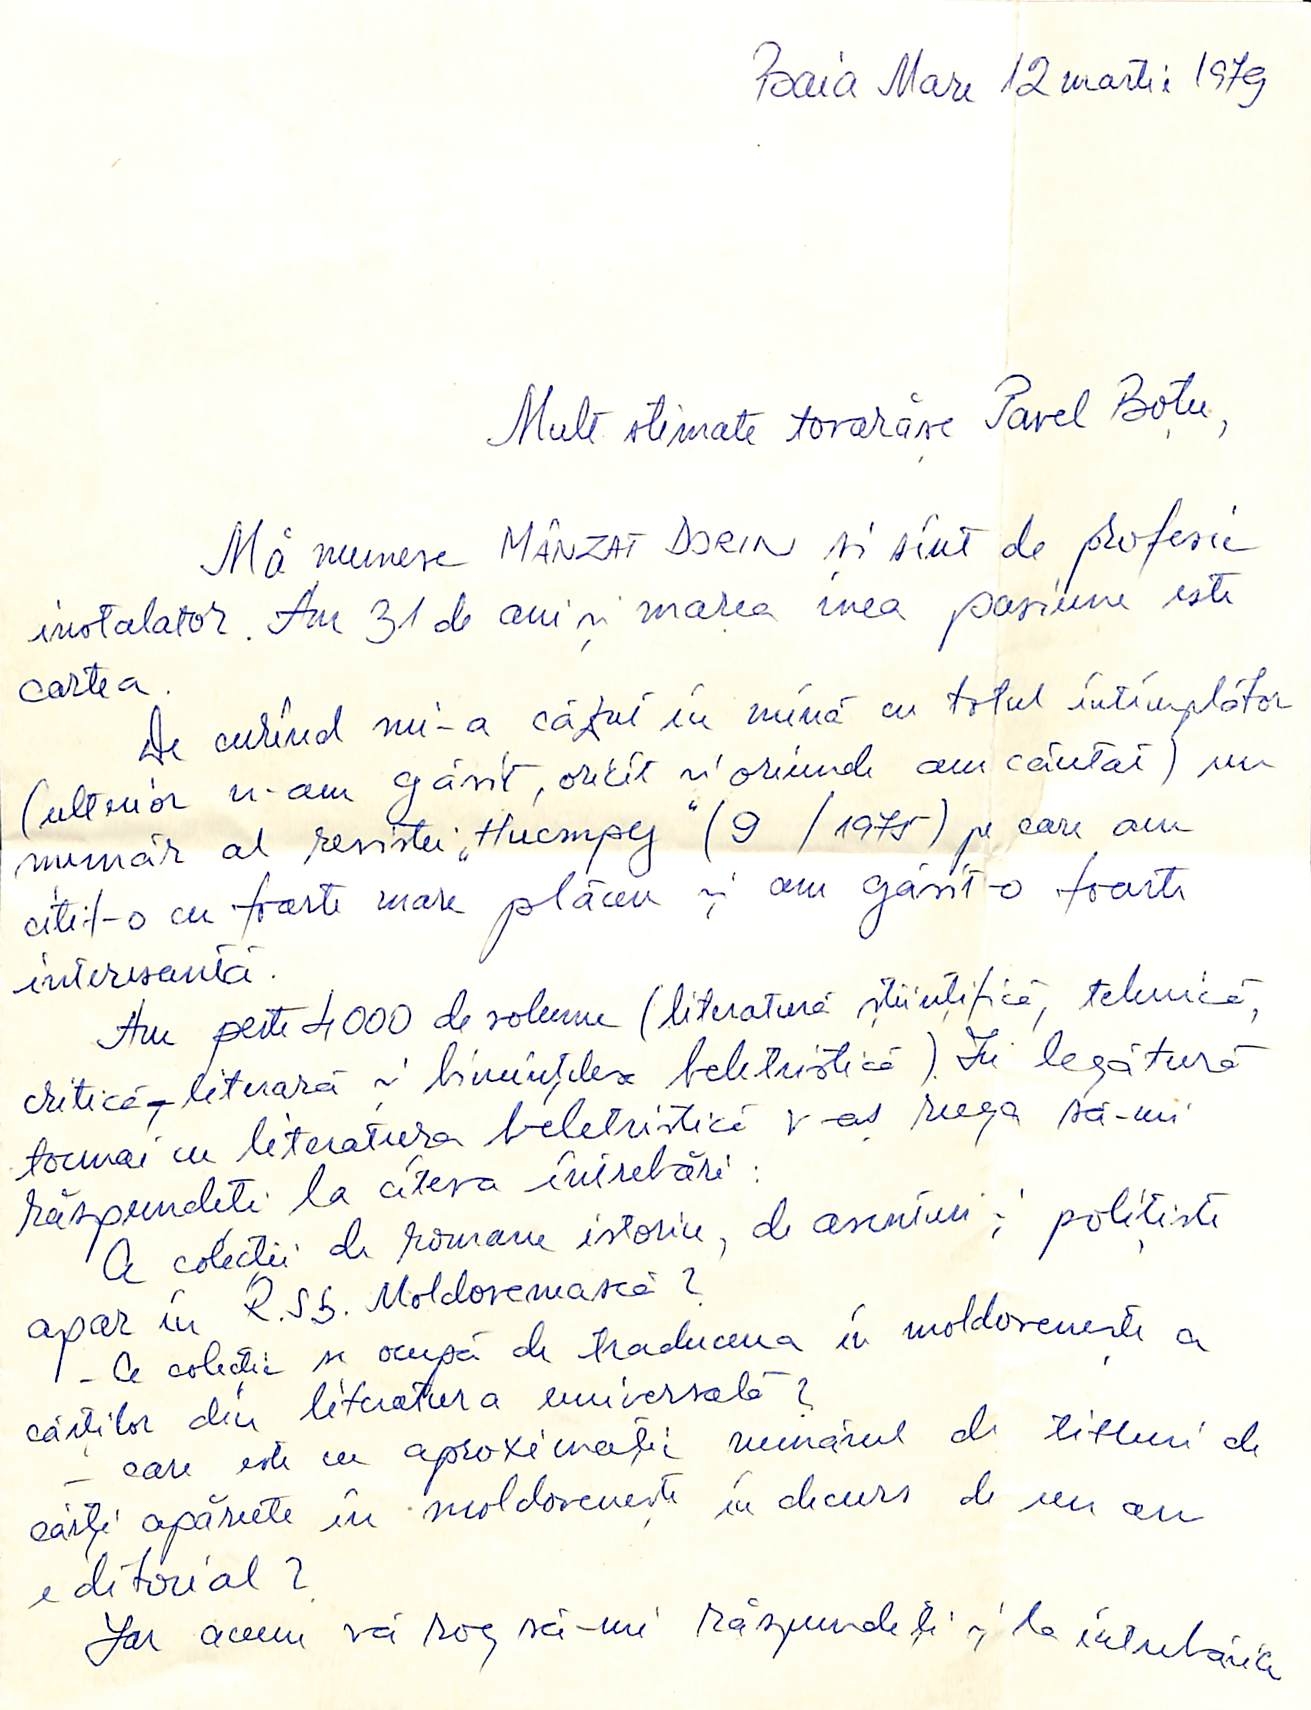 Baia Mare 12 martie 1979
Mult stimate tovarășe Pavel Boțu,
Mă numesc MÂNZAT DORIN și sînt de profesie
instalator. Am 31 de ani și marea mea pasiune este
cartea.
De curînd mi-a căzut în mînă cu totul întîmplător
(ulterior n-am găsit, oricît și oriunde am căutat) un
număr al revistei „Нистру“ (9 / 1975) pe care am
citit-o cu foarte mare plăcere și am găsit-o foarte
interesantă.
Am peste 4000 de volume (literatură științifică, tehnică,
critică-literară și bineînțeles beletristică). In legătură
tocmai cu literatura beletristică v-aș ruga să-mi
răspundeti la cîteva întrebări:
Ce colecții de romane istorice, de aventuri și polițiste
apar în R.SS. Moldovenească?
- Ce colecție se ocupă de traducerea în moldovenește a
cărților din literatura universală?
- care este cu aproximație numărul de titluri de
cărți apărute în moldovenește în decurs de un an
editorial?
Iar acum vă rog să-mi răspundeți și la întrebările